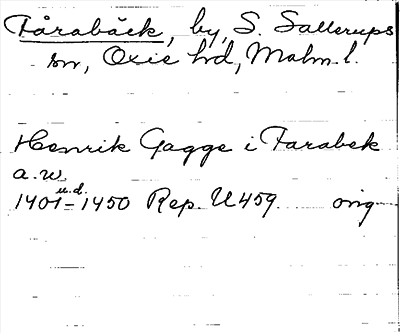 Fårabäck, by, S. Sallerups
sn, Oxie hd, Malm. l.
Henrik Gagge i Farabek
a.w.
u.d.
1401-1450 Rep. U459. orig